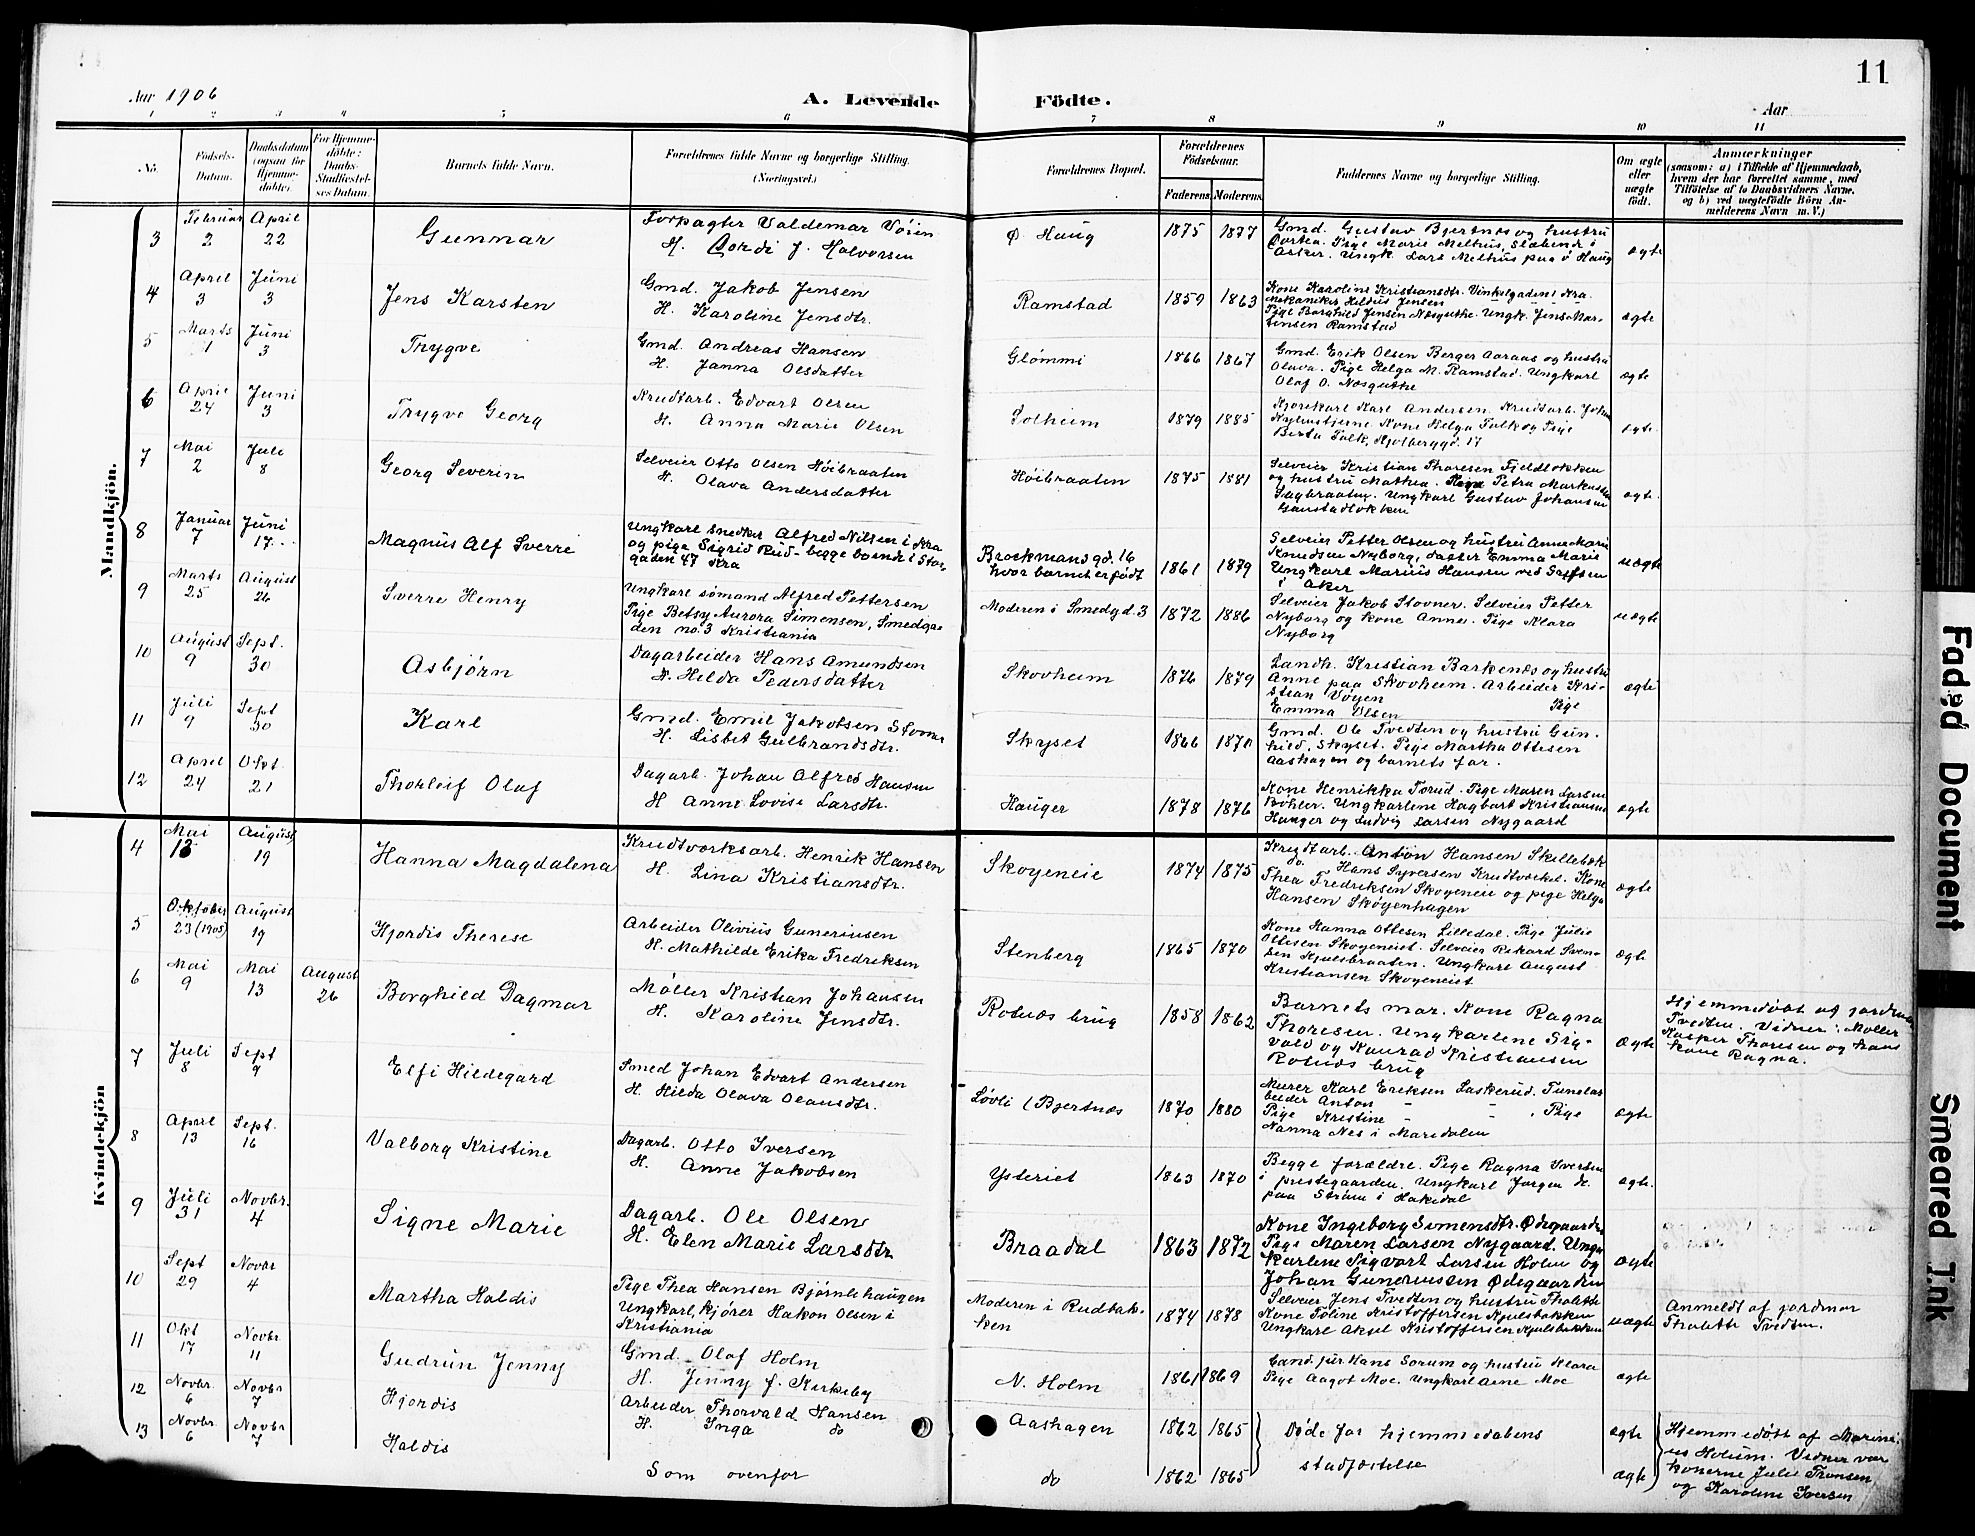 11
Aar 1906
A. Levende Födte.
Aar
1 2 3 4 5 6 7 8 9 10 11
No.
Födsels-Datum.
Daabsdatum (ogsaa for Hjemme-döbte).
For Hjemme-döbte: Daabs-Stadfæstelses Datum.
Barnets fulde Navn.
Forældrenes fulde Navne og borgerlige Stilling. (Næringsvei.)
Forældrenes Bopæl.
Forældrenes Födselsaar.
Faderens Moderens
Faddernes Navne og borgerlige Stilling.
Om ægte eller uægte födt.
Anmærkninger
(saasom: a) i Tilfælde af Hjemmedaab,
hvem der har forrettet samme, med
Tilföielse af to Daabsvidners Navne.
og b) ved uægtefödte Börn An-
melderens Navn m. V.)
Mandkjön.
3 Februar 2 April 22 Gunnar
Forpagter Valdemar Vöien
H. Cordi J. Halvorsen
Ø Haug 1875 1877
Gmd. Gustav Bjertnes og hustru
Dortea. Pige Marie Melhus, Slæbende i
Asker. Ungk. Lars Melhus paa Ø Haug
ægte
4 April 3 Juni 3 Jens Karsten
Gmd. Jakob Jensen
H. Karoline Jensdtr.
Ramstad 1859 1863
Kone Karoline Kristiansdtr. Vinkelgaden 1 Kra.
mekaniker Heldus Jensen
Pige Borghild Jensen Næsguthe. Ungk. Jens Mar-
tensen Ramstad
ægte
5 Marts 1 Juni 3 Thygve
Gmd. Andreas Hansen
H. Janna Olsdatter
Glömmi 1866 1867
Gmd. Erik Olsen Berger Aaraas og hustru
Olava. Pige Helga M. Ramstad. Ungkarl
Olaf O. Næsguthe
ægte
6 April 24 Juni 3 Trygve Georg
Krudtarb. Edvart Olsen
H. Anna Marie Olsen
Solheim 1879 1885
Kjörekarl Karl Andersen. Krudtarb. Johan
Kylenstjerne. Kone Helga Falk og Pige
Berta Falk, Kjolberggd. 17
ægte
7 Mai 2 Juli 8 Georg Severin
Selveier Otto Olsen Höibraaten
H. Olava Andersdatter
Höibraaten 1875 1881
Selveier Kristian Thoresen Fjeldlökken
og hustru Mathea. Pige Petra Markussen
Sagbraaten. Ungkarl Gustav Johansen
Gaustadlökken
ægte
8 Januar 7 Juni 17 Magnus Alf Sverre
Ungkarl snedker Alfred Nilsen i Kra
og pige Sigrid Rud - begge boende i Stor-
gaden 47 Kra
Brockmansgd. 16
hvor barnet er födt 1861 1879
Selveier Petter Olsen og hustru Anne Marie
Knudsen Nyborg, datter Emma Marie
Ungkarl Marius Hansen ved
i Aker
uægte
9 Marts 25 August 26 Sverre Henry
Ungkarl sömand Alfred Pettersen
Pige Betsy Aurora Simensen, Smedga-
den no. 3 Kristiania
Moderen i Smedgd. 3 1872 1886
Selveier Jakob Stovner. Selveier Petter
Nyborg og kone Anne. Pige Klara
Nyborg
uægte
10 August 9 Sept. 30 Asbjörn
Dagarbeider Hans Amundsen
H. Helda Pedersdatter
Skovheim 1876 1879
Landh. Kristian Barkenæs og hustru
Anne paa Skovheim. Arbeider Kri-
stian Vöyen Pige
Emma Olsen
ægte
11 Juli 9 Sept 30 Karl
Gmd. Emil Jakobsen Stovner
H. Lisbet Gulbrandsdtr.
Skyset 1866 1870
Gmd. Ole Tvedten og hustru Gun-
hild, Skyset. Pige Martha Ottesen
Aashagen og barnets far.
12 April 24 Okt. 21 Thorleif Olaf
Dagarb. Johan Alfred Hansen
H Anne Lovise Larsdtr.
Hauger 1878 1876
Kone Henrikka Torud. Pige Maren Larsen
Böhler. Ungkarlene Hagbart Kristiansen
Hauger og Ludvig Larsen Nygaard
ægte
Kvindekjön
4 Mai 13 August 19 Hanna Magdalena
Krudtværksarb. Henrik Hansen
H. Lina Kristiansdtr.
Skogeneie 1874 1875
Krudtarb. Anton Hansen Skillebæk
do Hans Syversen Krudtværket. Kone
Thea Fredriksen Skogeneie og pige Helga
Hansen Skögenhagen
ægte
5 Oktober 23 (1905) August 19 Hjordis Therese
Arbeider Olivius Gunerinsen
H. Mathilde Erika Fredriksen
Stenberg 1865 1870
Kone Hanna Ottesen Lilledal. Pige Julie
Ottesen Skogeneiet. Selveier Rikard Sven-
sen Kjulsbraaten. Ungkarl August
Kristiansen Skogeneiet
ægte
6 Mai 9 Mai 13 August 26 Borghild Dagmar
Möller Kristian Johansen
H. Karoline Jensdtr.
Rotnæs brug 1858 1862
Barnets mor. Kone Ragna
Thoresen. Ungkarlene Sig-
vald og Konrad Kristiansen
Rotnæs brug
Ægte
Hjemmedöbt af jordmor
Tvedten. Vidner: Möller
Kasper Thoresen og hans
kone Ragna.
7 Juli 8 Sept 9 Elfi Hildegard
Smed Johan Edvart Andersen
H. Hilda Olava Olausdtr.
Lövli (Bjertnæs 1870 1880
Murer Karl Eriksen Laskerud. Tunelar
beider Anton - -
Pige Kristine - - . Pige
Nanna Nes i Maridalen
ægte
8 April 13 Sept. 16 Valborg Kristine
Dagarb. Otto Iversen
H. Anne Jakobsen
Ysteriet 1863 1870
Begge forældre. Pige Ragna Iversen
i prestegaarden. Ungkarl Jörgen do.
paa Ström i Hakedal
ægte.
9 Juli 31 Novbr. 4 Signe Marie
Dagarb. Ole Olsen
H. Elen Marie Larsdtr
Braadal 1863 1872
Kone Ingeborg Simensdtr. Ödegaarden
Pige Maren Larsen Nygaard. Ung-
karlene Sigvart Larsen Holm og
Johan Gunerinssen Ödegaarden
ægte
10 Sept 29 Novbr 4 Martha Haldis
Pige Thea Hansen Björnlihaugen
Ungkarl, kjörer Hakon Olsen i
Kristiania
Moderen i Rudbak-
ken 1874 1878
Selveier Jens Tvedten og hustru Thalette
Kone Toline Kristoffersen Kjulsbakken
Ungkarl Aksel Kristoffersen Kjulsbakken
uægte
Anmeldt af jordmor
Thalette Tvedten.
11 Okt 17 Novbr 11 Gudrun Jenny
Gmd. Olaf Holm
H. Jenny J. Kirkeby
N. Holm 1861 1869
Cand. jur Hans Sorum og hustru Klara
Pige Aagot Moe. Ungkarl Arne Moe
ægte
12 Novbr. 6 Novbr 7 Hjordis
Arbeider Thorvald Hansen
H. Inga do
Aashagen 1862 1865
Döde för hjemmedaabens
stadfæstelse
ægte
Hjemmedöbt af Marini-
us Holum. Vidner var
konerne Julie Tronsen
og Karoline Iversen
13 Novbr. 6 Novbr 7 Haldis
Som ovenfor
do 1862 1865
ægte
Faded Document
Smeared Ink